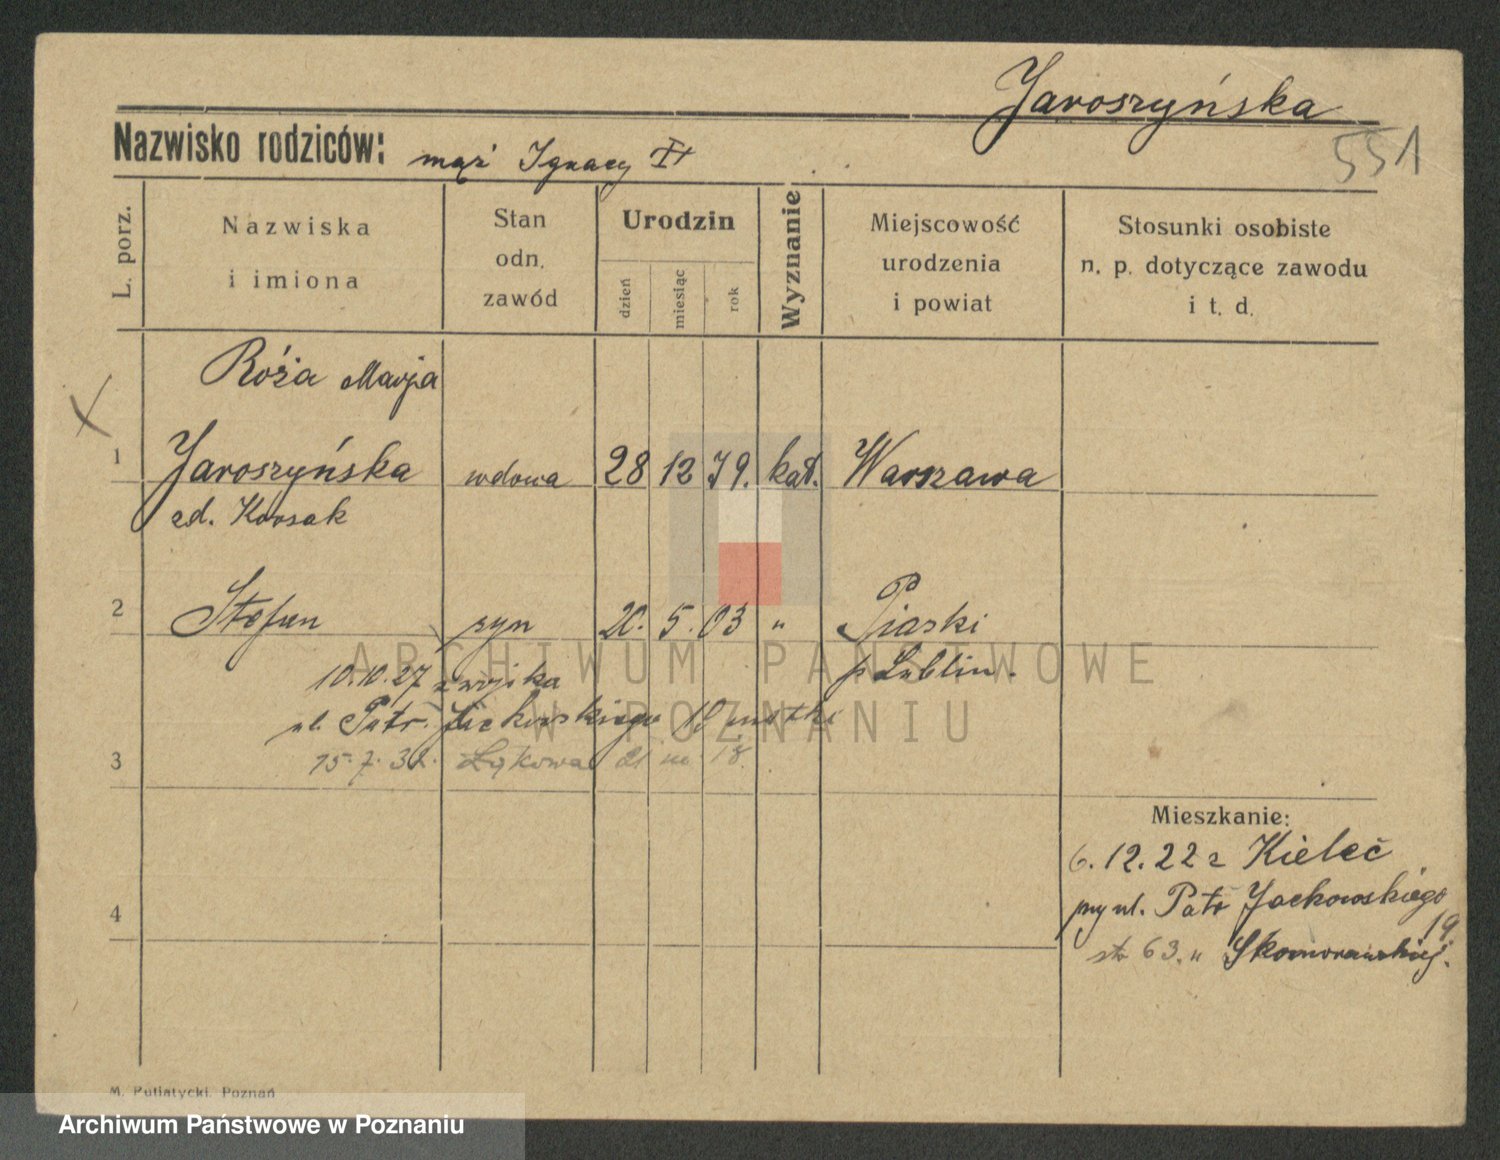 Jaroszyńska
551
Nazwisko rodziców: mąż Ignacy
L. porz.
Nazwiska
i imiona
Stan
odn.
zawód
Urodzin
dzień
miesiąc
rok
Wyznanie
Miejscowość
urodzenia
i powiat
Stosunki osobiste
n. p. dotyczące zawodu
i t. d.
Róża Marja
1 Jaroszyńska wdowa 28 12 79. kat. Warszawa
zd. Korsak
2 Stefan syn 20. 5. 03 " Piaski
p Lublin.
10.10.27 z wojska
ul. Patr. Jackowskiego 19 u matki
3 15.7.32. Łąkowa 21 m 18.
Mieszkanie:
6.12.22 z Kielc
przy ul. Patr Jackowskiego
19
4
63. u Skomorowskiej.
M. Putiatycki. Poznań
ARCHIWUM PAŃSTWOWE
W POZNANIU
Archiwum Państwowe w Poznaniu